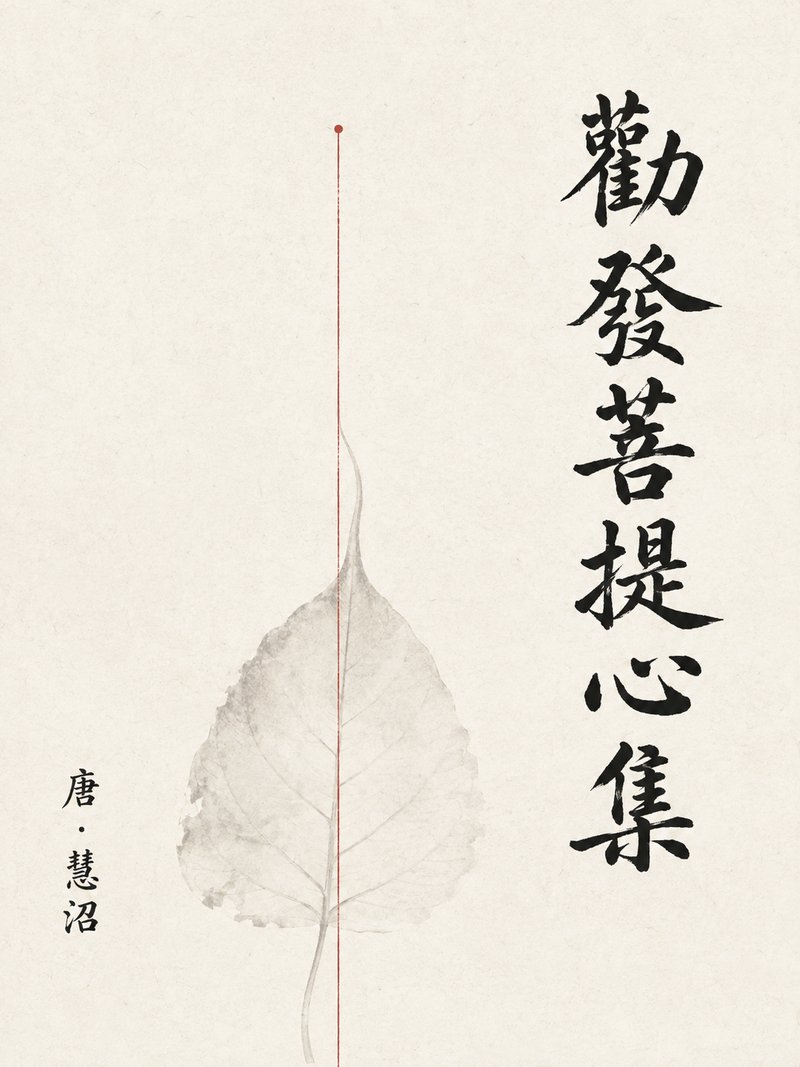 勸發菩提心集
唐·慧沼